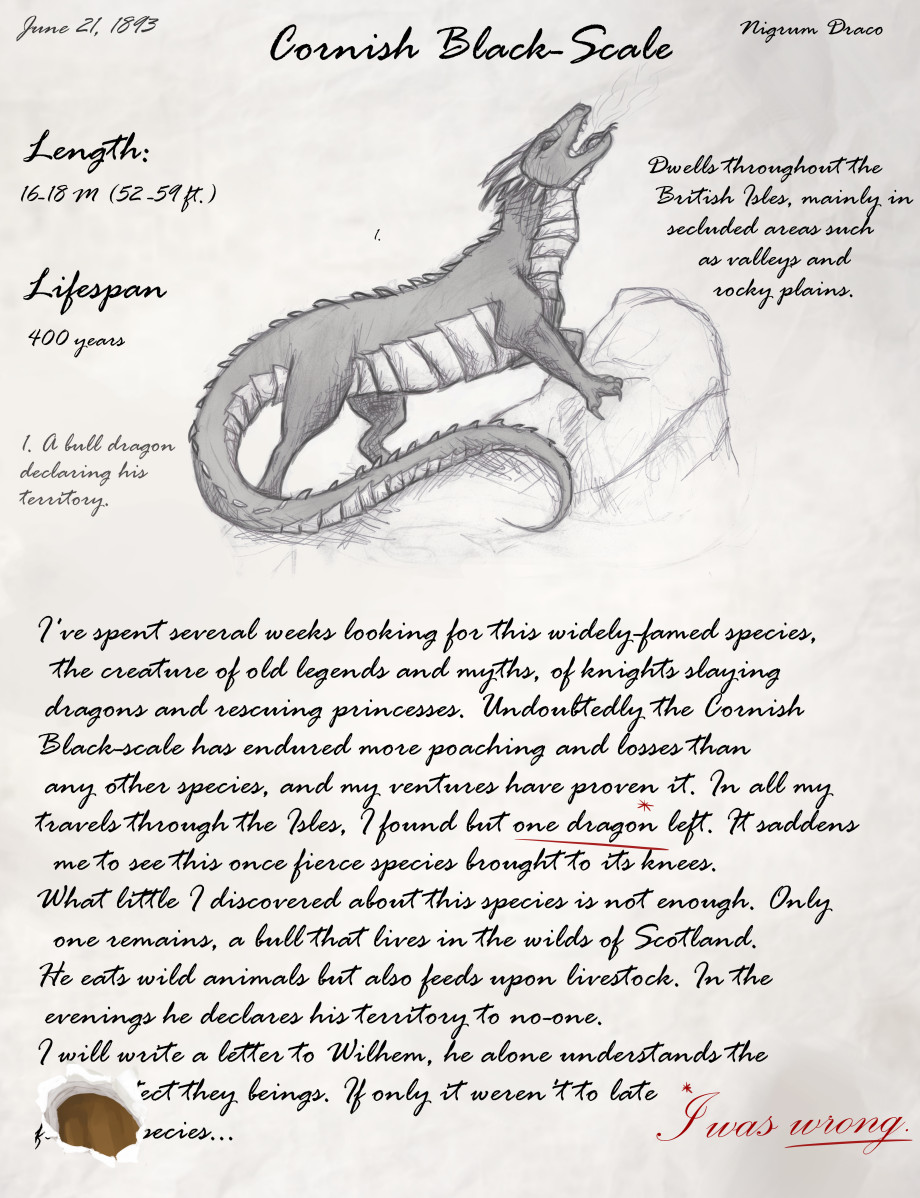 June 21, 1893
Cornish Black-Scale
Nigrum Draco
Length:
16-18 M (52-59 ft.)
1.
Dwells throughout the
British Isles, mainly in
secluded areas such
as valleys and
rocky plains.
Lifespan
400 years
1. A bull dragon
declaring his
territory.
I've spent several weeks looking for this widely-famed species,
the creature of old legends and myths, of knights slaying
dragons and rescuing princesses. Undoubtedly the Cornish
Black-scale has endured more poaching and losses than
any other species, and my ventures have proven it. In all my
travels through the Isles, I found but one dragon* left. It saddens
me to see this once fierce species brought to its knees.
What little I discovered about this species is not enough. Only
one remains, a bull that lives in the wilds of Scotland.
He eats wild animals but also feeds upon livestock. In the
evenings he declares his territory to no-one.
I will write a letter to Wilhem, he alone understands the
they beings. If only it weren't to late
* I was wrong.